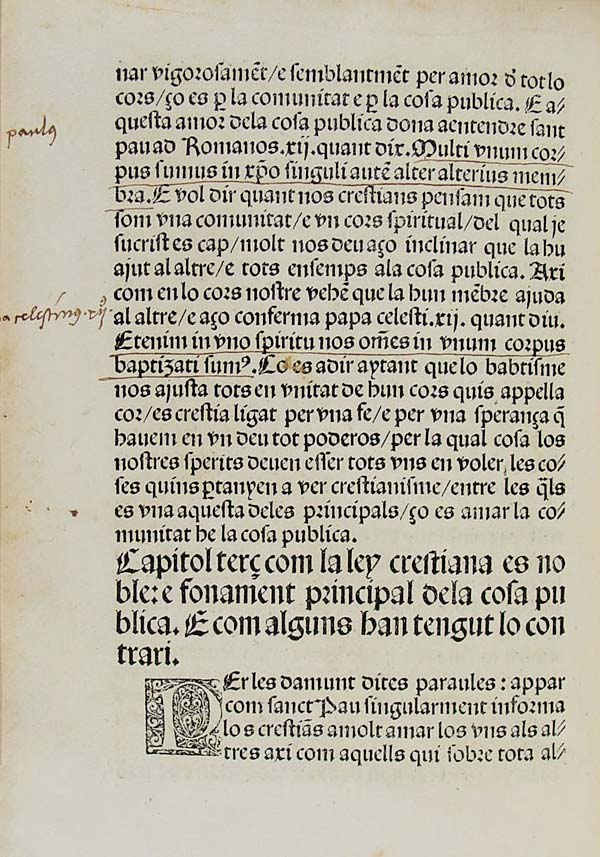 nar vigorosamēt/e semblantmēt per amor d̄ tot lo
cors/ço es ꝑ la comunitat e ꝑ la cosa publica. E a⸗
questa amor dela cosa publica dona aentendre sant
pau ad Romanos.xij.quant dix.Multi vnum cor⸗
pus sumus in xp̄o singuli autē alter alterius mem⸗
bra.E vol dir quant nos crestians pensam que tots
som vna comunitat/e vn cors spiritual/del qual je
sucrist es cap/molt nos deu aço inclinar que la hu
ajut al altre/e tots ensemps ala cosa publica. Axi
com en lo cors nostre vehē que la hun mēbre ajuda
al altre/e aço conferma papa celesti.xij. quant diu.
Etenim in vno spiritu nos om̄es in vnum corpus
baptizati sumꝰ.Ço es adir aytant que lo babtisme
nos ajusta tots en vnitat de hun cors quis appella
cor/es crestia ligat per vna fe/e per vna sperança q̄
hauem en vn deu tot poderos/per la qual cosa los
nostres sperits deuen esser tots vns en voler les co⸗
ses quins ꝑtanyen a ver crestianisme/entre les q̄ls
es vna aquesta deles principals/ço es amar la co⸗
munitat he la cosa publica.
Capitol terç com la ley crestiana es no
ble:e fonament principal dela cosa pu
blica. E com alguns han tengut lo con
trari.
PEr les damunt dites paraules : appar
com sanct Pau singularment informa
los crestiās amolt amar los vns als al⸗
tres axi com aquells qui sobre tota al⸗
paulꝰ
celestinꝰ.xij